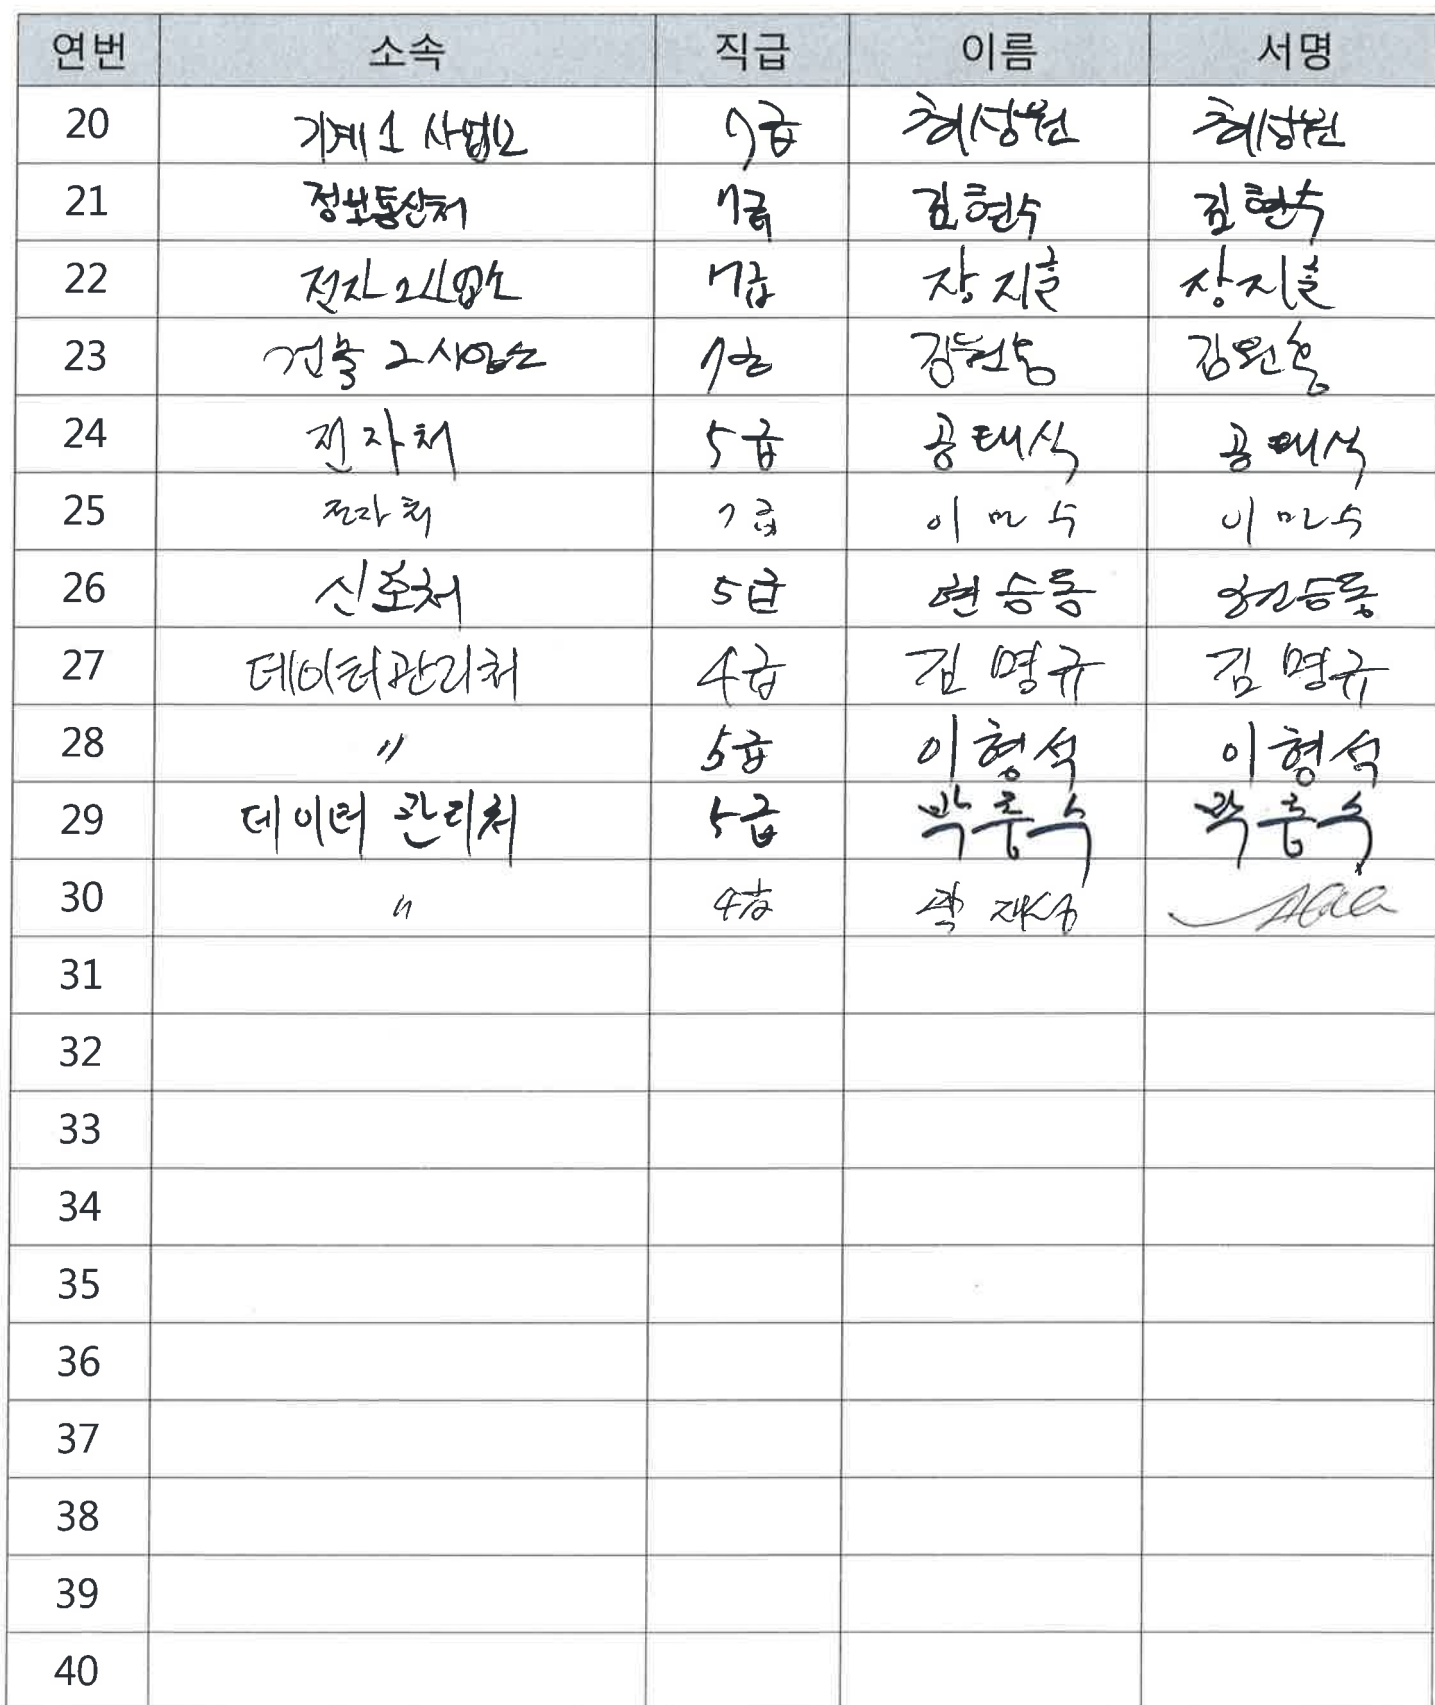 연번 소속 직급 이름 서명
20 기계1 사업소 7급 최성원 최성원
21 정보통신처 7급 김현수 김현수
22 전자2사업소 7급 장지훈 장지훈
23 건축 2사업소 7급 김원중
24 전자처 5급 공태식 공태식
25 전자처 7급 이민수 이민수
26 신호처 5급 현승동 현승동
27 데이터관리처 4급 김명규 김명규
28 〃 5급 이형석 이형석
29 데이터 관리처 5급 박종수 박종수
30 〃 4급
31
32
33
34
35
36
37
38
39
40